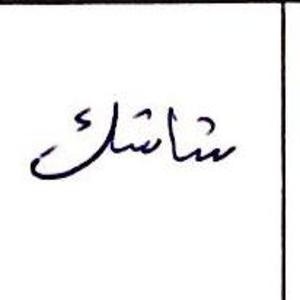 شاشك